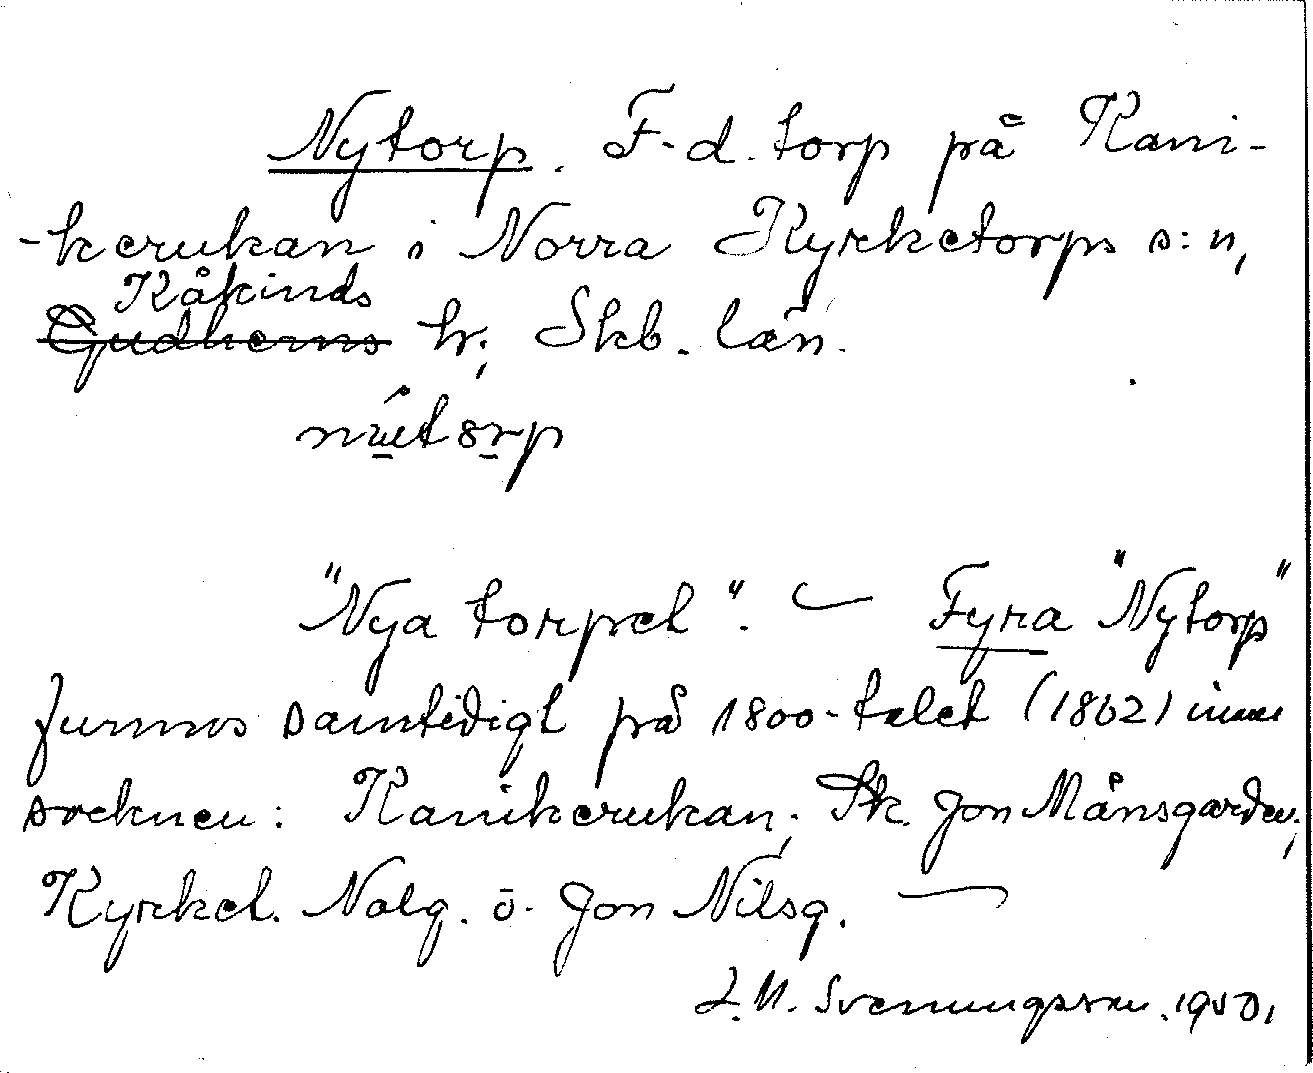 Nytorp. F.d. torp på Kani-
-kerukan i Norra Kyrketorps s:n,
Kåkinds
Gudhems hr; Skb. län.

"Nya torpet". — Fyra "Nytorp"
funnos samtidigt på 1800-talet (1862) inom
socknen: Kanikerukan; Sk. Jon Månsgården;
Kyrkeb. Nolg. o. Jon Nilsg. —
J.M. Svenungsson. 1950,